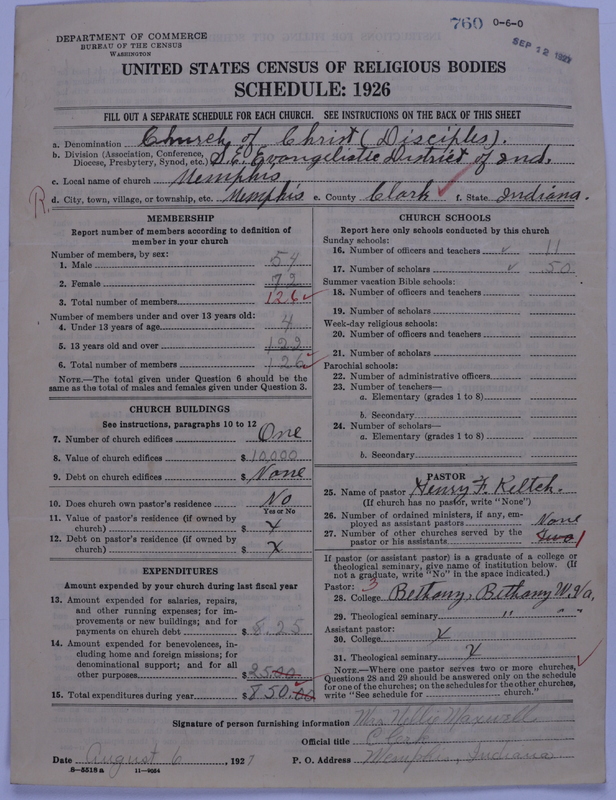 760 0-6-0
SEP 12 1927
DEPARTMENT OF COMMERCE
BUREAU OF THE CENSUS
WASHINGTON
UNITED STATES CENSUS OF RELIGIOUS BODIES
SCHEDULE: 1926
FILL OUT A SEPARATE SCHEDULE FOR EACH CHURCH. SEE INSTRUCTIONS ON THE BACK OF THIS SHEET
a. Denomination Church of Christ (Disciples).
b. Division (Association, Conference, Diocese, Presbytery, Synod, etc.) S.E. Evangelistic District of Ind.
c. Local name of church Memphis
R. d. City, town, village, or township, etc. Memphis e. County Clark f. State Indiana.
MEMBERSHIP
Report number of members according to definition of
member in your church
Number of members, by sex:
1. Male 54
2. Female 72
3. Total number of members 126
Number of members under and over 13 years old:
4. Under 13 years of age 4
5. 13 years old and over 122
6. Total number of members 126
NOTE.—The total given under Question 6 should be
same as the total of males and females given under Question 3.
CHURCH BUILDINGS
See instructions, paragraphs 10 to 12
7. Number of church edifices One
8. Value of church edifices $ 10,000
9. Debt on church edifices $ None
10. Does church own pastor's residence No
Yes or No
11. Value of pastor's residence (if owned by
church) $ x
12. Debt on pastor's residence (if owned by
church) $ x
EXPENDITURES
Amount expended by your church during last fiscal year
13. Amount expended for salaries, repairs,
and other running expenses; for im-
provements or new buildings; and for
payments on church debt $ 8.25
14. Amount expended for benevolences, in-
cluding home and foreign missions; for
denominational support; and for all
other purposes $ 25.00
15. Total expenditures during year $ 850.00
CHURCH SCHOOLS
Report here only schools conducted by this church
Sunday schools:
16. Number of officers and teachers 11
17. Number of scholars 50
Summer vacation Bible schools:
18. Number of officers and teachers
19. Number of scholars
Week-day religious schools:
20. Number of officers and teachers
21. Number of scholars
Parochial schools:
22. Number of administrative officers
23. Number of teachers—
a. Elementary (grades 1 to 8)
b. Secondary
24. Number of scholars—
a. Elementary (grades 1 to 8)
b. Secondary
PASTOR
25. Name of pastor Henry F. Keltch.
(If church has no pastor, write "None")
26. Number of ordained ministers, if any, em-
ployed as assistant pastors None
27. Number of other churches served by the
pastor or his assistants two 1
If pastor (or assistant pastor) is a graduate of a college or
theological seminary, give name of institution below. (If
not a graduate, write "No" in the space indicated.)
Pastor: 3
28. College Bethany, Bethany W. Va,
29. Theological seminary " " "
Assistant pastor:
30. College x
31. Theological seminary x
NOTE.—Where one pastor serves two or more churches,
Questions 28 and 29 should be answered only on the schedule
for one of the churches; on the schedules for the other churches,
write "See schedule for church."
Signature of person furnishing information Mrs. Nellie Maxwell
Official title Clerk
Date August 6, 1927 P. O. Address Memphis, Indiana
8-5518a 11-9084